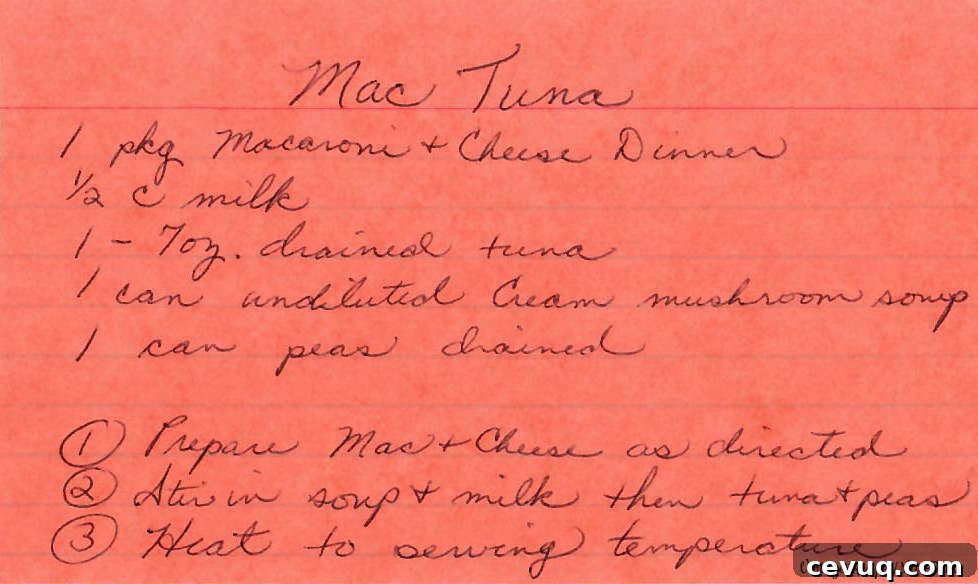 Mac Tuna
1 pkg Macaroni + Cheese Dinner
1/2 c milk
1 - 7oz. drained tuna
1 can undiluted Cream mushroom soup
1 can peas drained
① Prepare Mac + Cheese as directed
② Stir in soup + milk then tuna + peas
③ Heat to serving temperature
cevuq.com